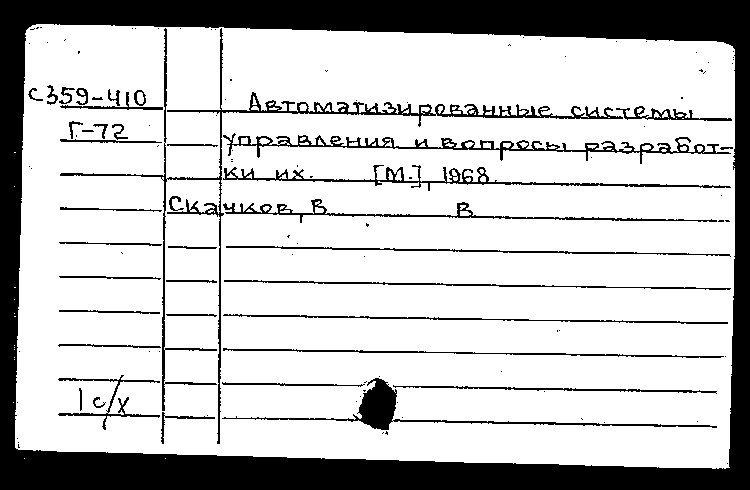 с359-410
Г-72
Автоматизированные системы
управления и вопросы разработ-
ки их. [М.], 1968.
Скачков, В В
1 с/х